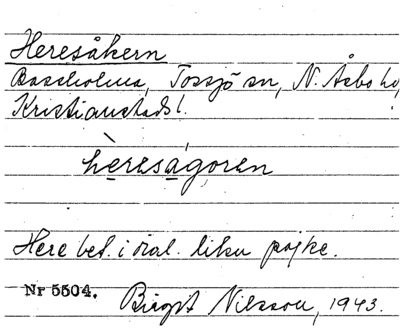 Heresåkern
Bassholma, Tossjö sn, N. Åsbo hd,
Kristianstads l.
hèreságoren
Here bet. i dial. liten pojke.
Nr 5504. Birgit Nilsson, 1943.